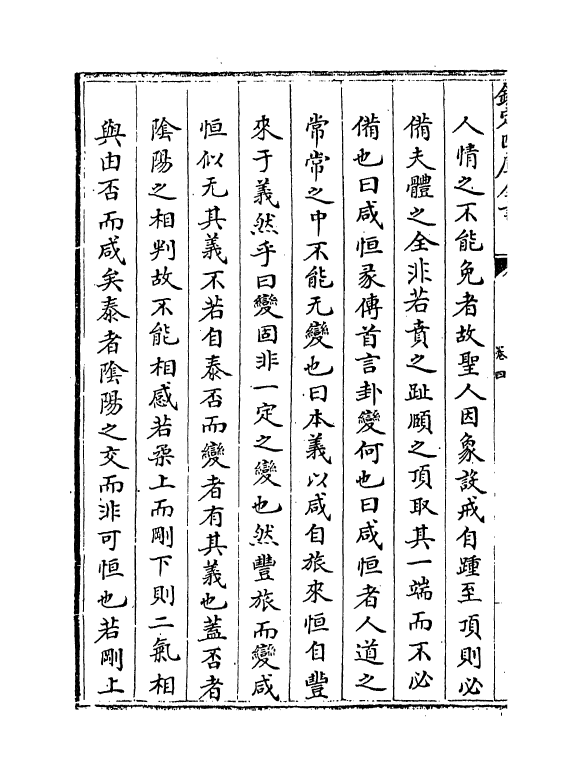 欽定四庫全書
卷四
人情之不能免者故聖人因象設戒自踵至頂則必
備夫體之全非若賁之趾頤之頂取其一端而不必
備也曰咸恒彖傳首言卦變何也曰咸恒者人道之
常常之中不能无變也曰本義以咸自旅來恒自豐
來于義然乎曰變固非一定之變也然豐旅而變咸
恒似无其義不若自泰否而變者有其義也蓋否者
陰陽之相判故不能相感若柔上而剛下則二氣相
與由否而咸矣泰者陰陽之交而非可恒也若剛上